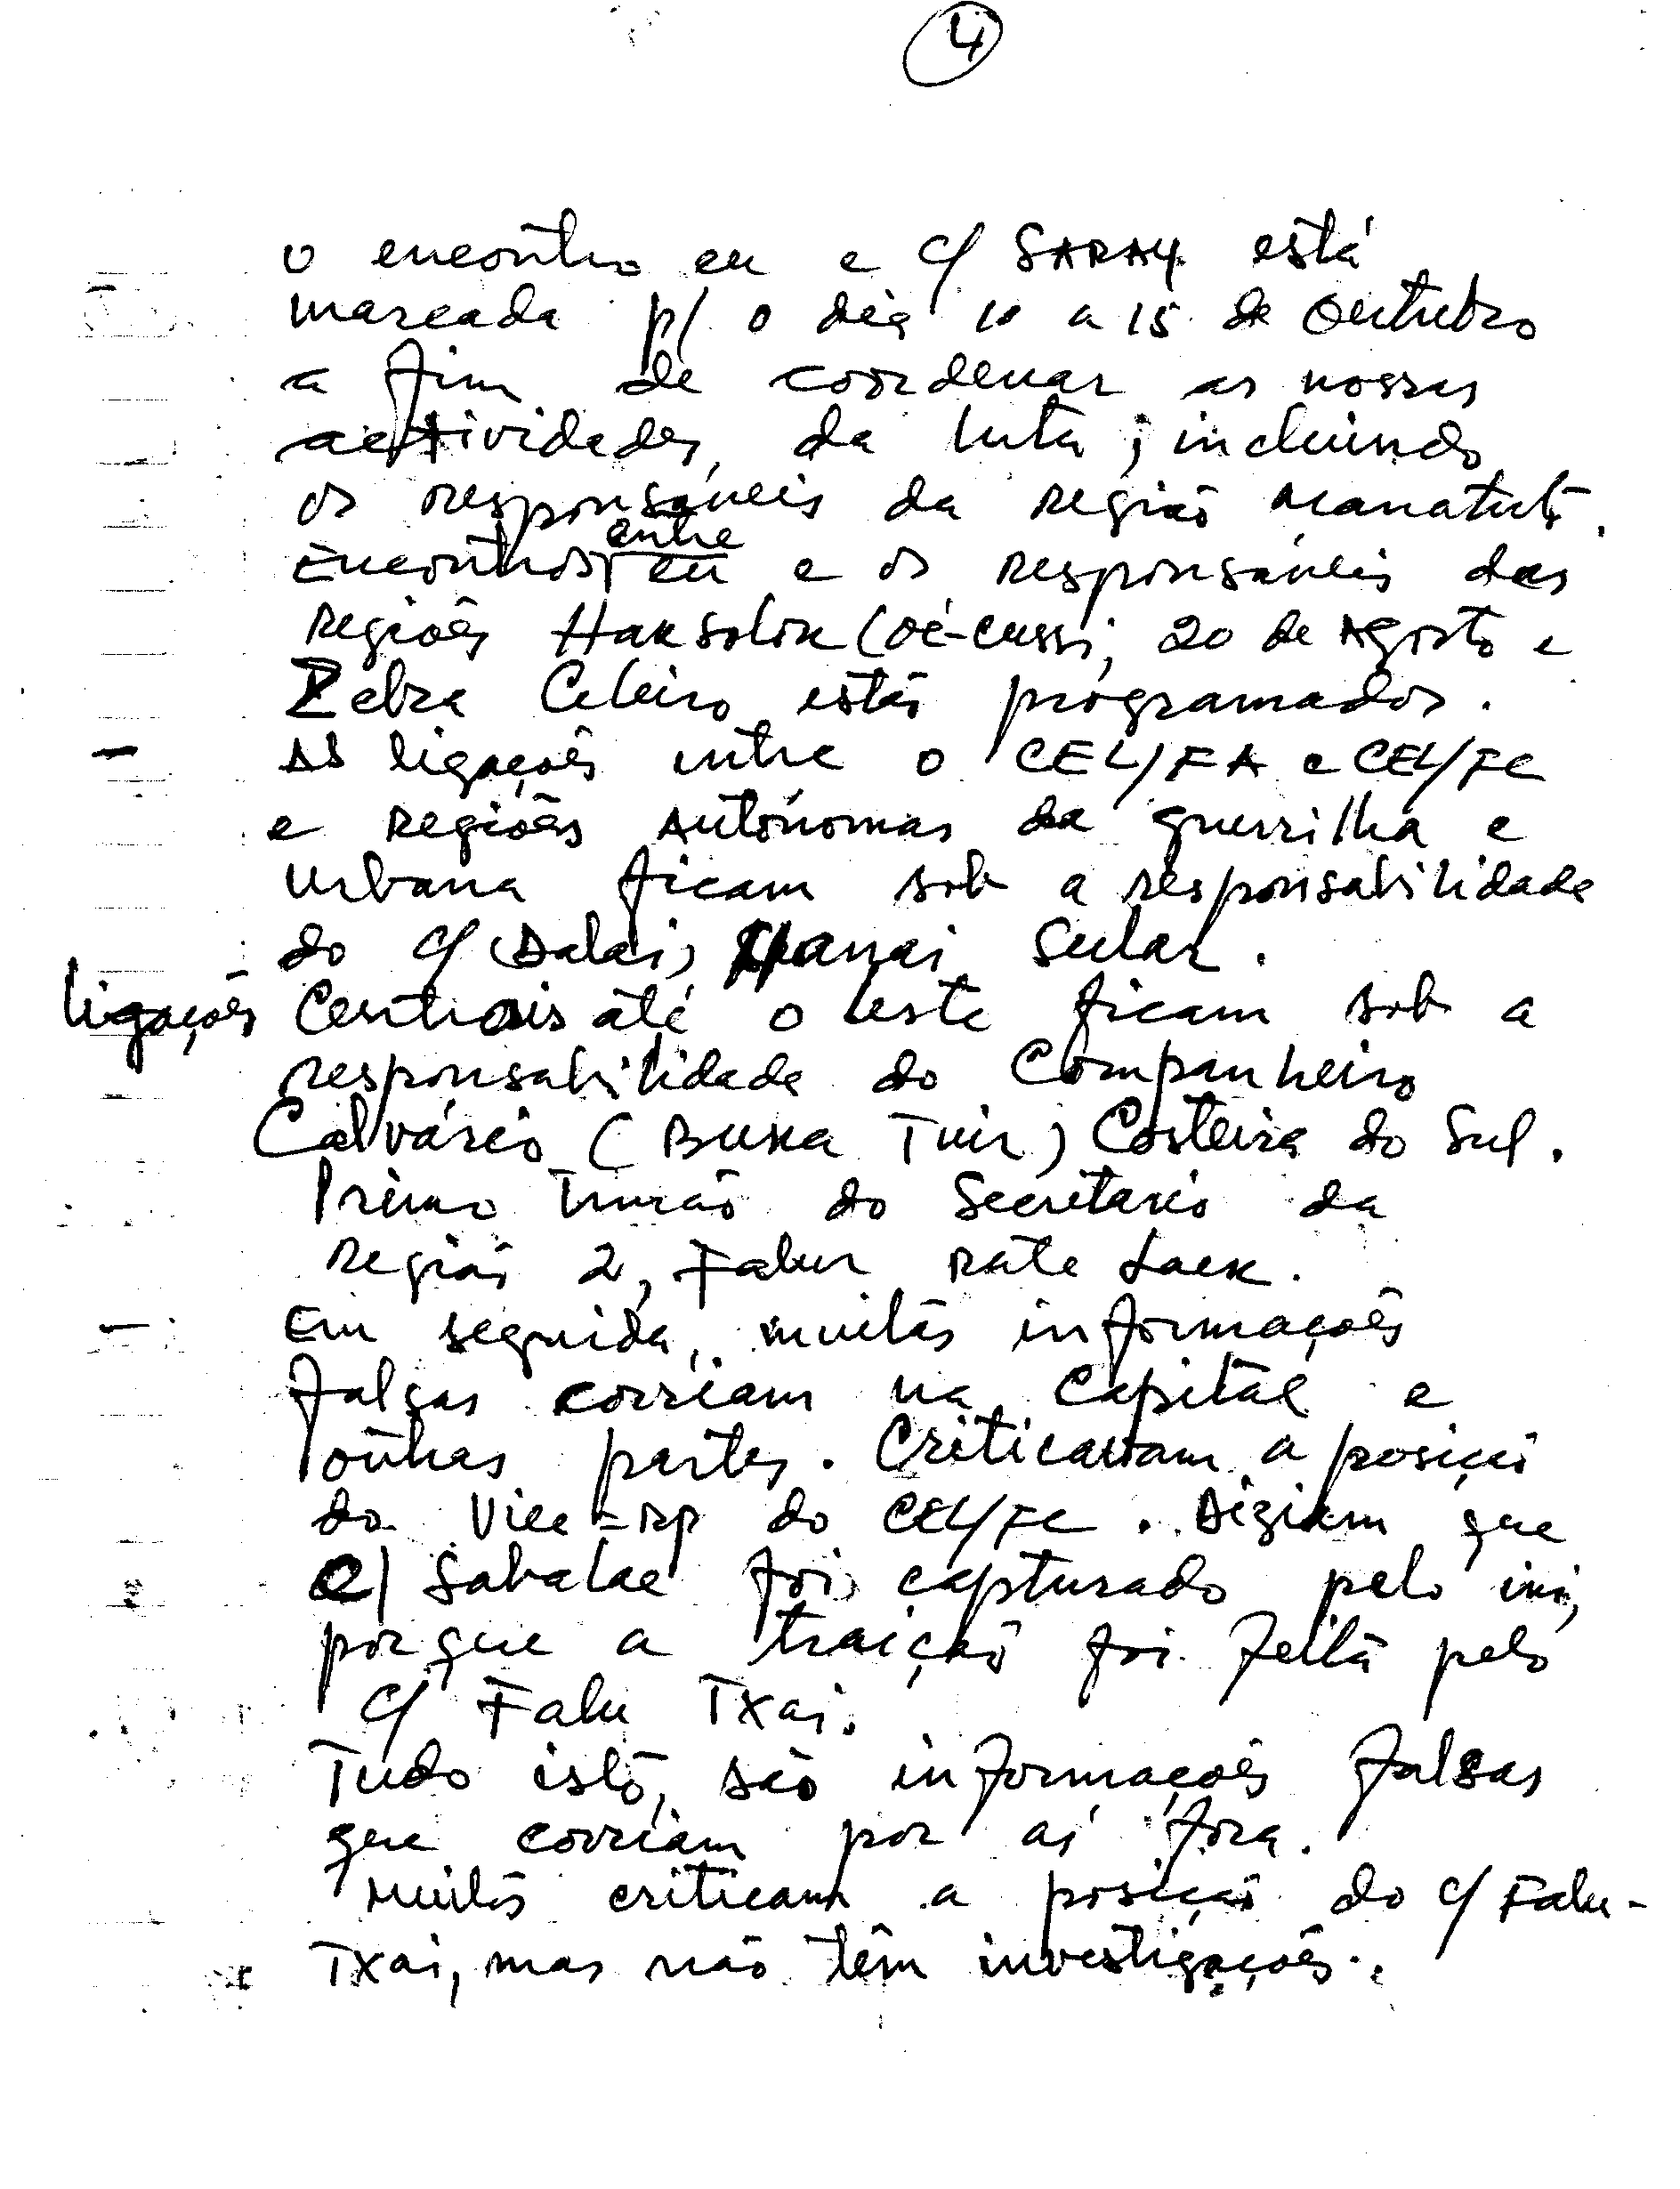 4
o encontro eu e c/ SARAY está
marcada p/ o dia 10 a 15 de Outubro
a fim de coordenar as nossas
actividades, da luta, incluindo
os responsáveis da região Manatuto.
Encontros entre eu e os responsáveis das
regiões Haksolok (Oé-cussi, 20 de Agosto e
Zebra Celeiro estão programados.
- As ligações entre o CEL/FA e CEL/FC
e Regiões Autónomas da guerrilha e
Urbana ficam sob a responsabilidade
do c/ (Dalai) Sular.
ligações Centrais até o leste ficam sob a
responsabilidade do Companheiro
Calvário (Buka Tuir) Costeira do Sul.
Primo Irmão do Secretario da
região 2, Falur Rate Laek.
- Em seguida, muitas informações
falsas corriam na Capital e
outras partes. Criticavam a posição
do Vice-RP do CEL/FC. Diziam que
c/ Sabalae foi capturado pelo ini,
porque a traição foi feita pelo
c/ Falu Txai.
Tudo isto, são informações falsas
que corriam por aí fora.
Muitos criticam a posição do c/ Falu-
Txai, mas não têm investigações.